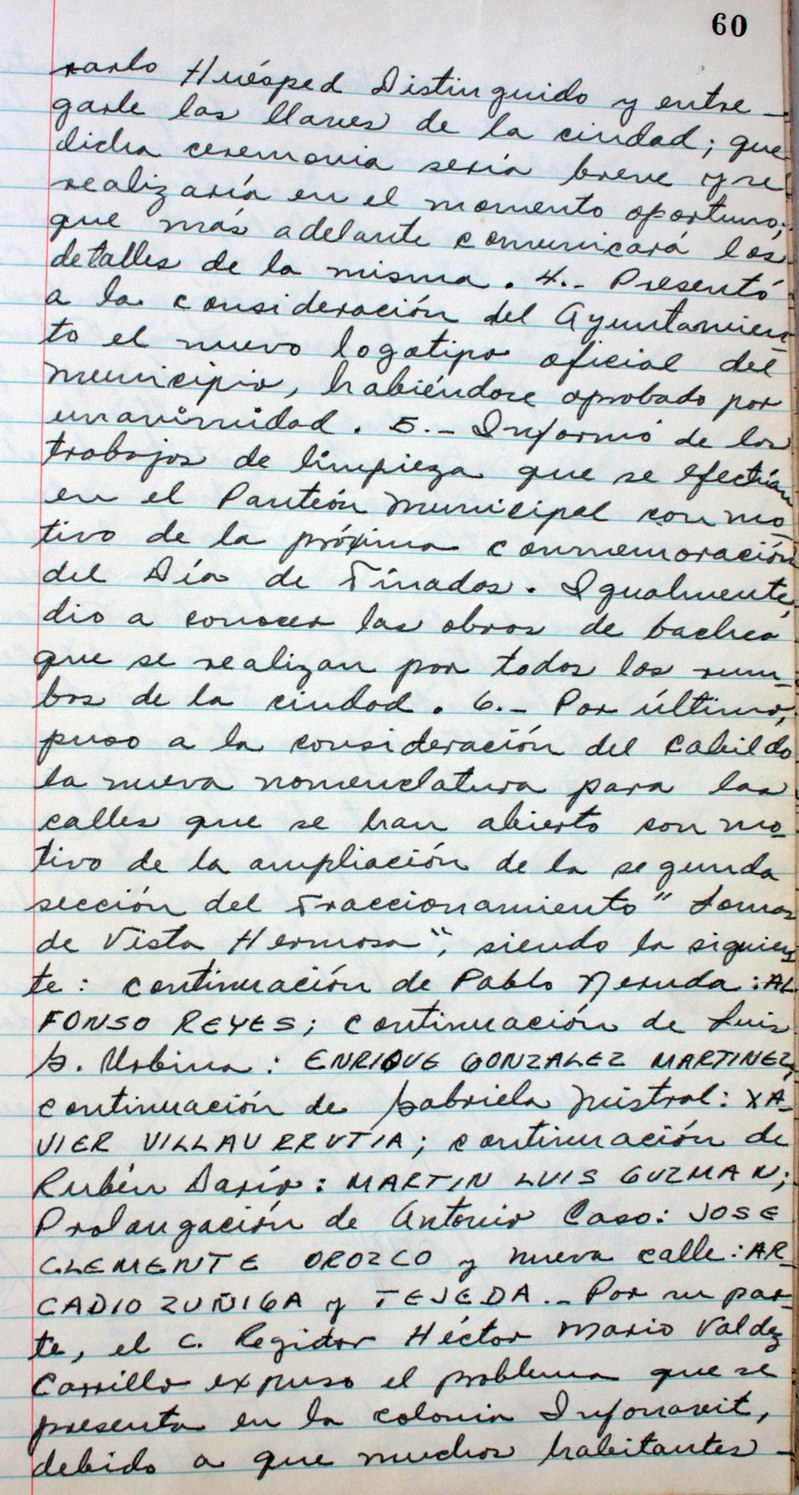 60
rarlo Huésped Distinguido y entre-
garle las llaves de la ciudad; que
dicha ceremonia sería breve y se
realizaría en el momento oportuno;
que más adelante comunicará los
detalles de la misma. 4.- Presentó
a la consideración del Ayuntamien-
to el nuevo logotipo oficial del
municipio, habiéndose aprobado por
unanimidad. 5.- Informó de los
trabajos de limpieza que se efectúan
en el Panteón Municipal con mo-
tivo de la próxima conmemoración
del Día de Finados. Igualmente,
dio a conocer las obras de bacheo
que se realizan por todos los rum-
bos de la ciudad. 6.- Por último,
puso a la consideración del Cabildo
la nueva nomenclatura para las
calles que se han abierto con mo-
tivo de la ampliación de la segunda
sección del Fraccionamiento "Lomas
de Vista Hermosa", siendo la siguien-
te: continuación de Pablo Neruda: AL
FONSO REYES; continuación de Luis
G. Urbina: ENRIQUE GONZALEZ MARTINEZ;
continuación de Gabriela Mistral: XA-
VIER VILLAURRUTIA; continuación de
Rubén Darío: MARTIN LUIS GUZMAN;
Prolongación de Antonio Caso: JOSE
CLEMENTE OROZCO y nueva calle: AR-
CADIO ZUÑIGA y TEJEDA.- Por su par-
te, el C. Regidor Héctor Mario Valdez
Carrillo expuso el problema que se
presenta en la colonia Infonavit,
debido a que muchos habitantes -